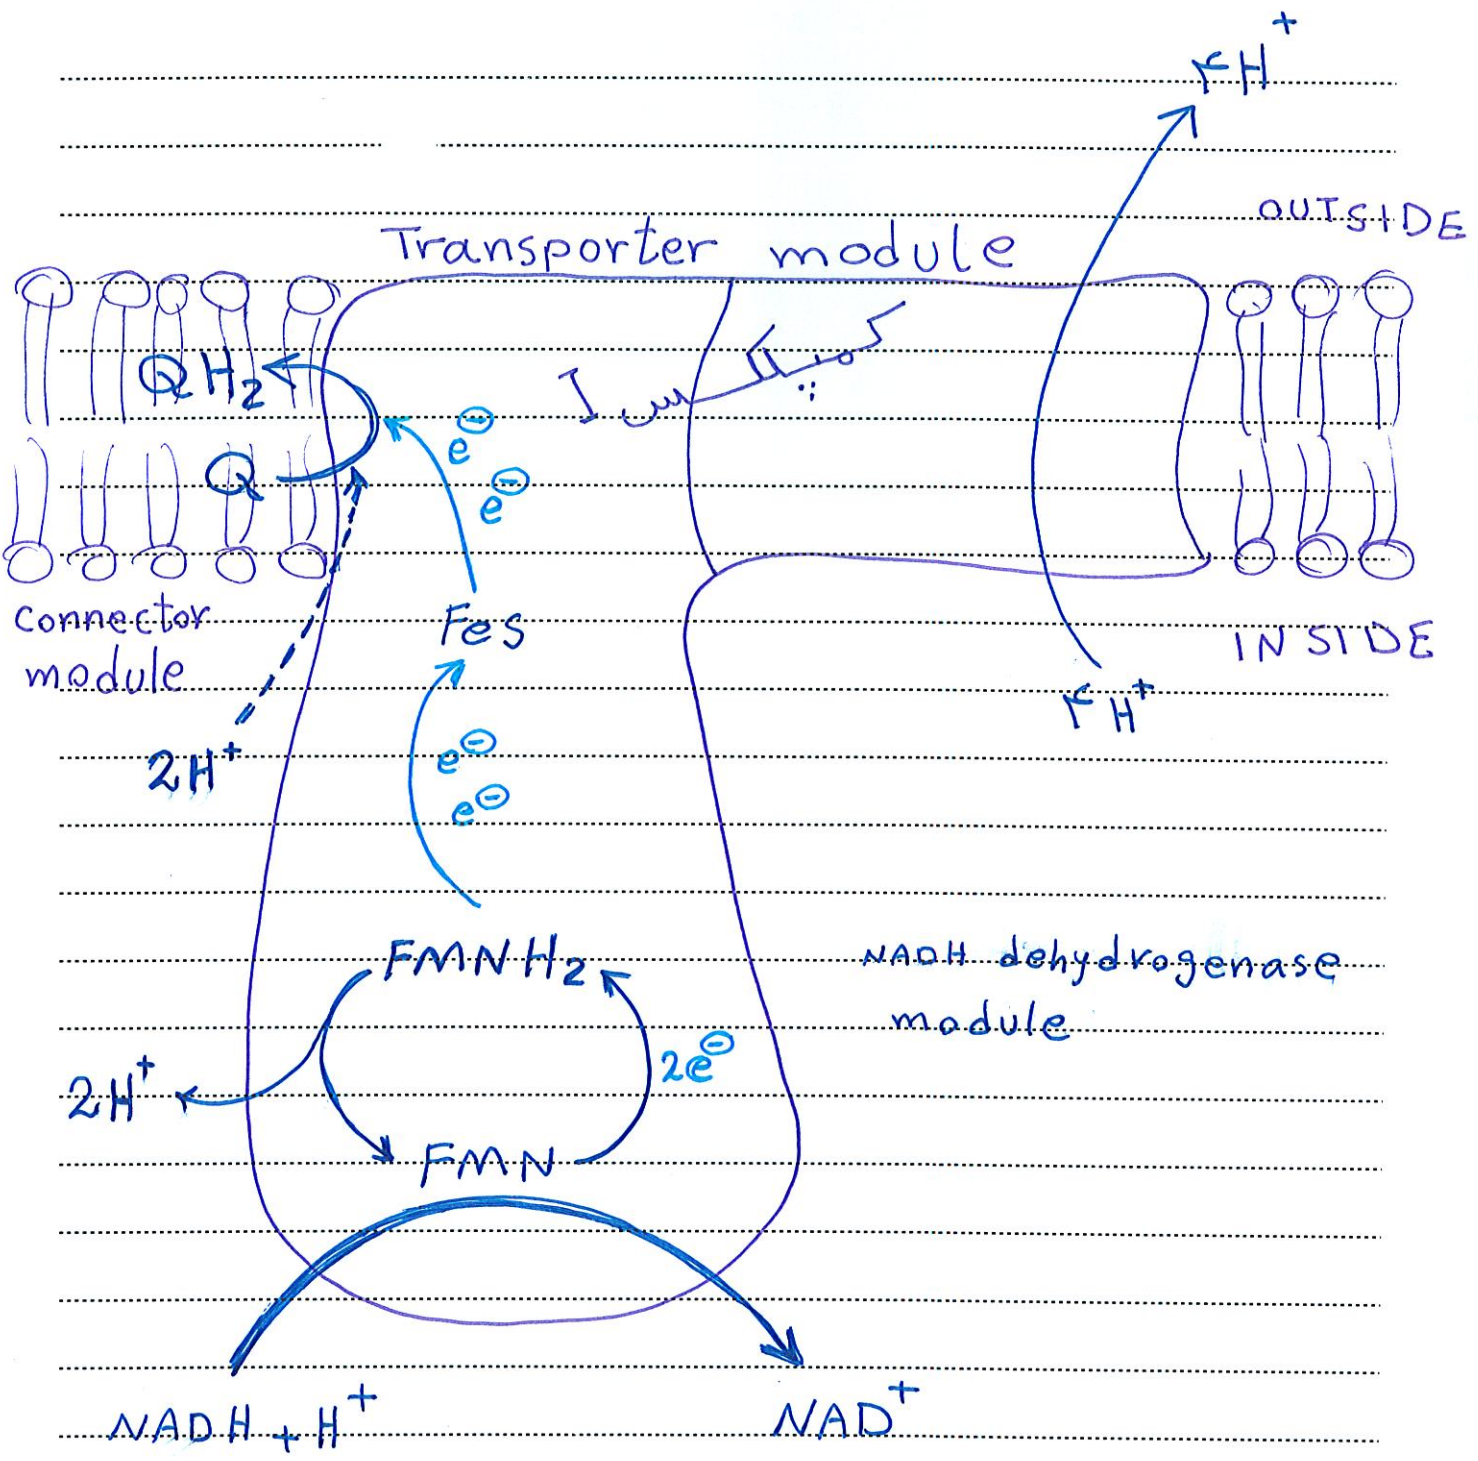 ۴H⁺
OUTSIDE
Transporter module
کمپلکس I
QH₂
e⊖
Q
e⊖
connector
module
FeS
INSIDE
2H⁺
۴H⁺
e⊖
e⊖
FMNH₂
NADH dehydrogenase
module
2H⁺
2e⊖
FMN
NADH + H⁺
NAD⁺